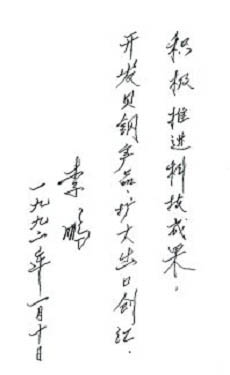 积极推进科技成果。
开发贝钢产品,扩大出口创汇.
李鹏
一九九二年一月十日